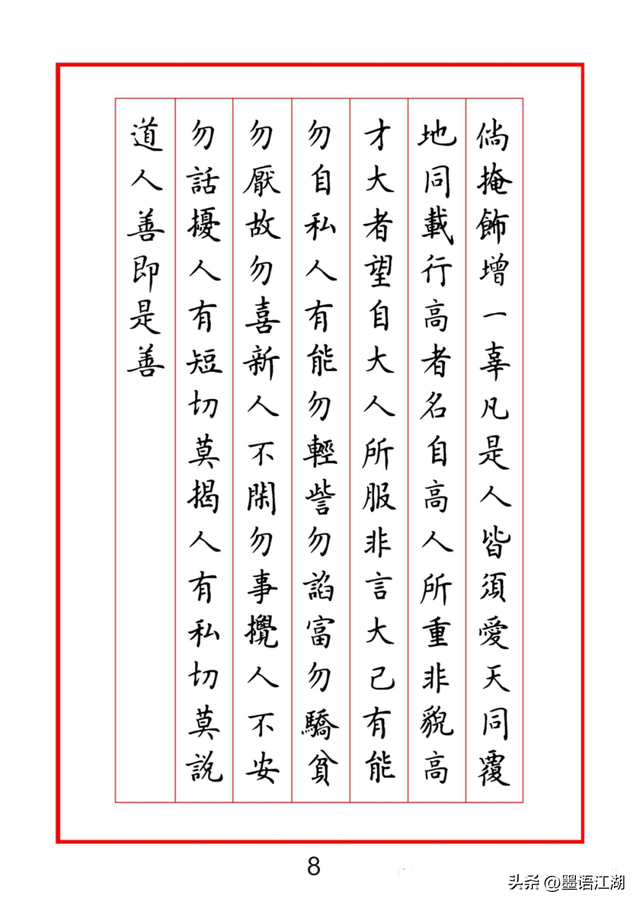 倘掩飾增一辜凡是人皆須愛天同覆
地同載行高者名自高人所重非貌高
才大者望自大人所服非言大己有能
勿自私人有能勿輕訾勿諂富勿驕貧
勿厭故勿喜新人不閑勿事攪人不安
勿話擾人有短切莫揭人有私切莫說
道人善即是善
8
头条 @墨语江湖